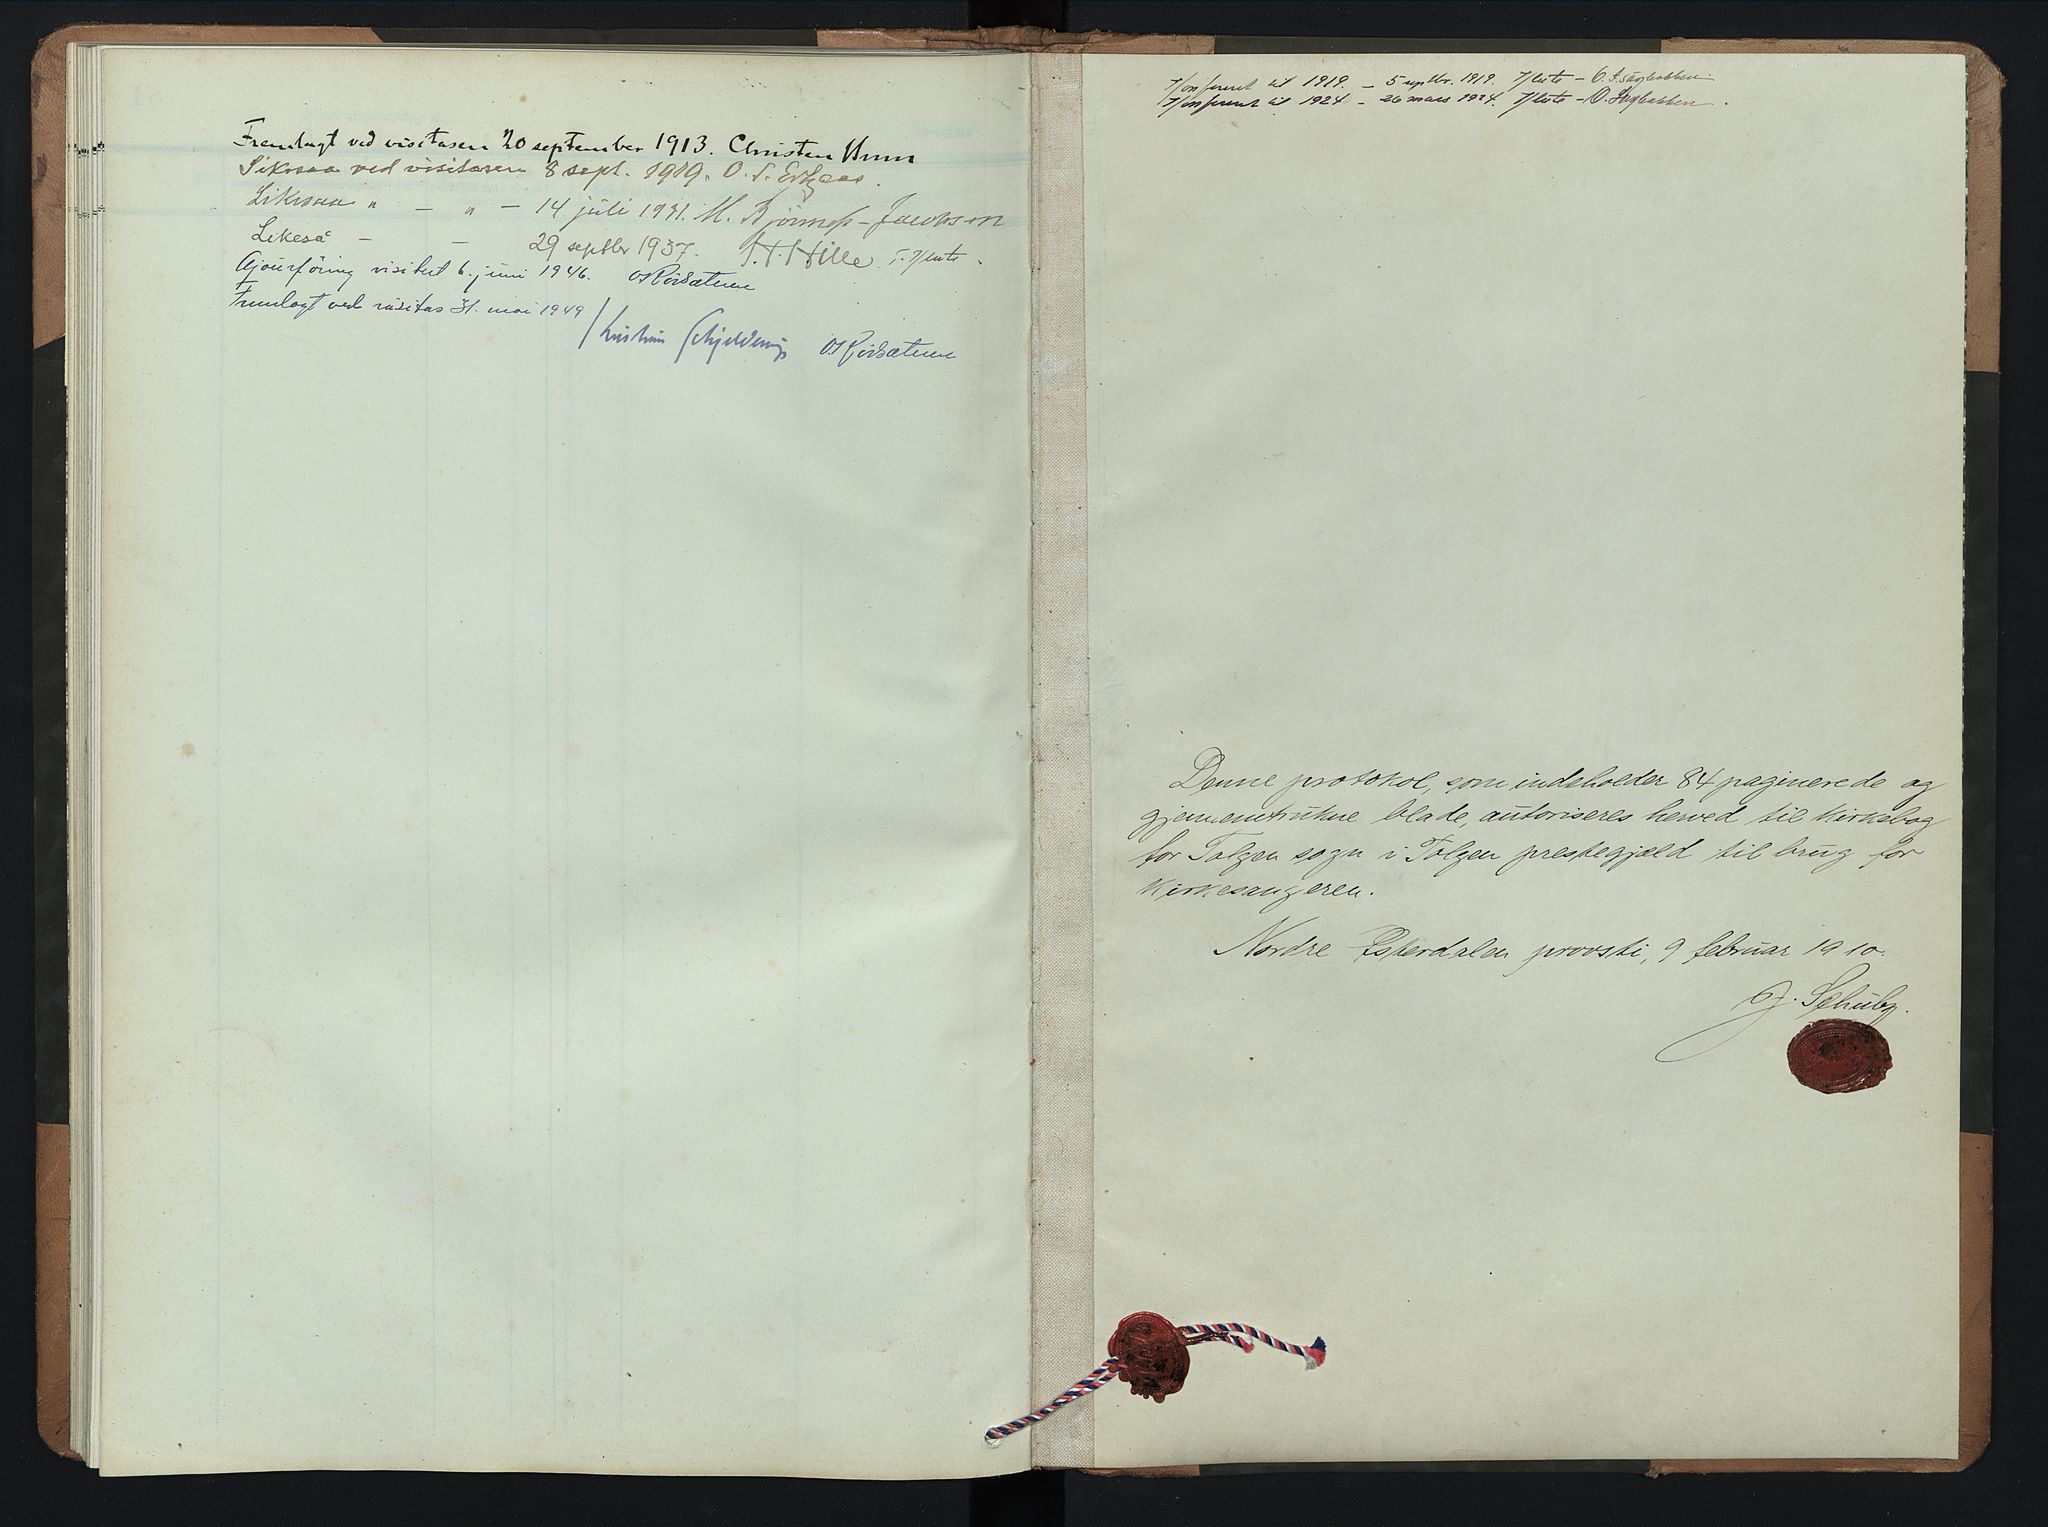 Fremlagt ved visitasen 20 september 1913. Christen Brun
Likesaa ved visitasen 8 sept. 1919. O. S.
Likesaa " — " — 14 juli 1931. M. Bjønness-Jacobsen
Likeså — — 29 septbr 1937. H. Hille
Ajourföring visitert 6. juni 1946. O Røisætnen
Fremlagt ved visitas 31. mai 1949
Kristian Schjelderup O Røisætnen
Konferert til 1919. — 5 septbr. 1919.
Konferert til 1924 — 26 mars 1924.
Denne protokol, som indeholder 84 paginerede og
gjennemtrukne blade, autoriseres herved til kirkebog
for Tolgen sogn i Tolgen prestegjæld til brug for
kirkesangeren.
Nordre Østerdalen provsti, 9 februar 1910.
J. Schiby.